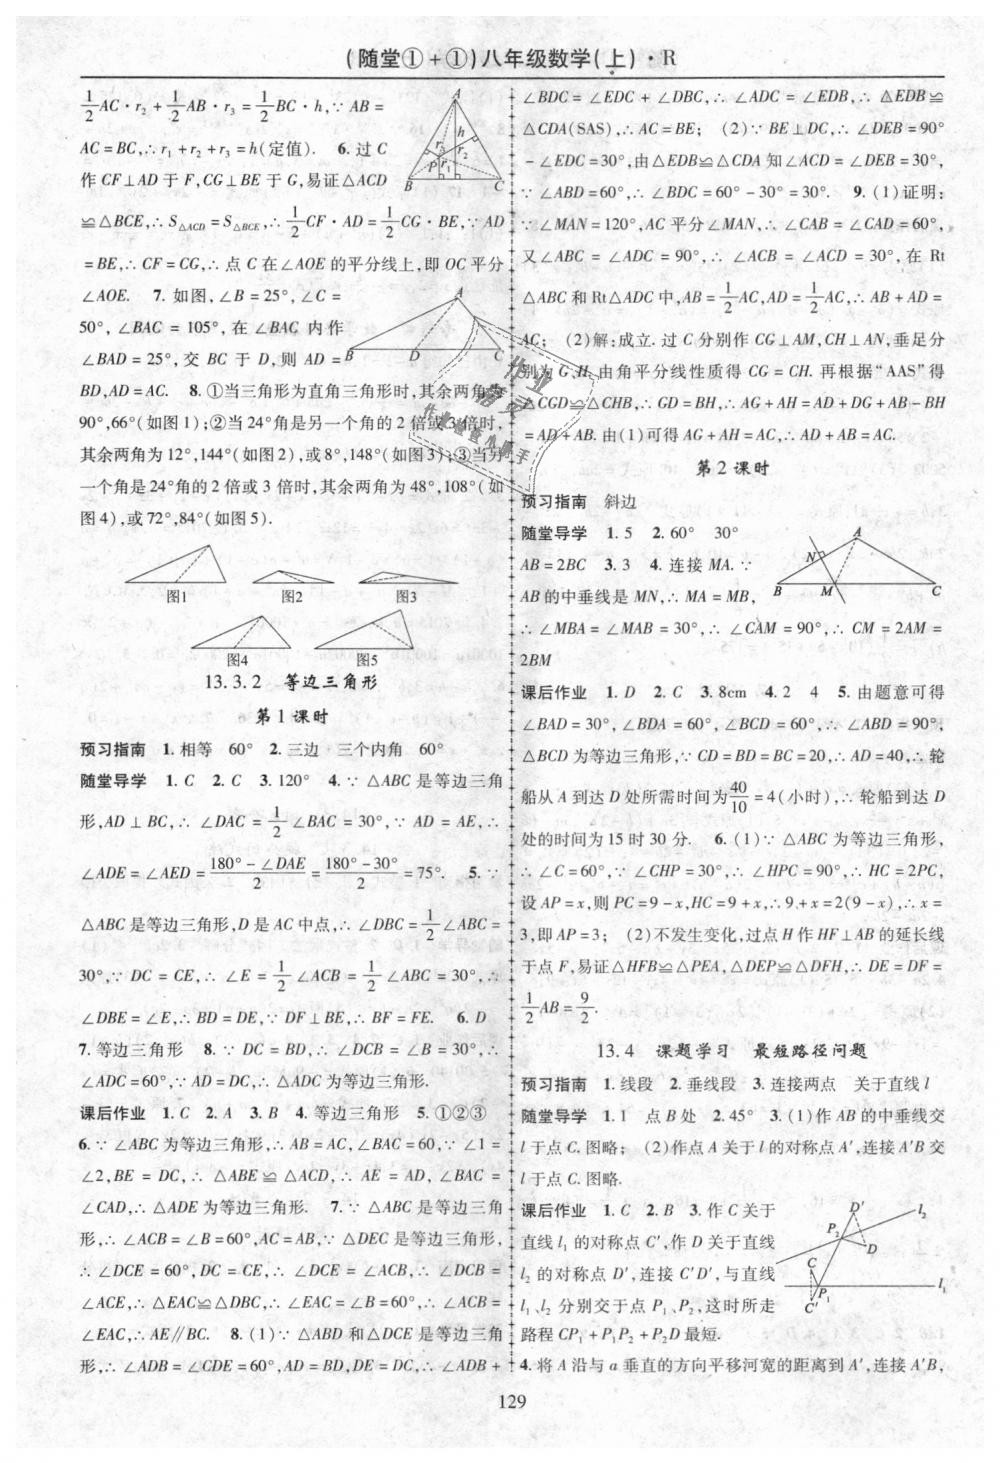 (随堂①+①)八年级数学(上)·R
1/2 AC·r₂+1/2 AB·r₃=1/2 BC·h,∵AB=
AC=BC,∴r₁+r₂+r₃=h(定值). 6.过C
作CF⊥AD于F,CG⊥BE于G,易证△ACD
≌△BCE,∴S△ACD=S△BCE,∴1/2 CF·AD=1/2 CG·BE,∵AD
=BE,∴CF=CG,∴点C在∠AOE的平分线上,即OC平分
∠AOE. 7.如图,∠B=25°,∠C=
50°,∠BAC=105°,在∠BAC内作
∠BAD=25°,交BC于D,则AD=
BD,AD=AC. 8.①当三角形为直角三角形时,其余两角为
90°,66°(如图1);②当24°角是另一个角的2倍或3倍时,
其余两角为12°,144°(如图2),或8°,148°(如图3);③当另
一个角是24°角的2倍或3倍时,其余两角为48°,108°(如
图4),或72°,84°(如图5).
A
h
r₃ r₂
P r₁
B C
A
B D C
图1 图2 图3
图4 图5
13.3.2 等边三角形
第1课时
预习指南 1.相等 60° 2.三边 三个内角 60°
随堂导学 1.C 2.C 3.120° 4.∵△ABC是等边三角
形,AD⊥BC,∴∠DAC=1/2∠BAC=30°,∵AD=AE,∴
∠ADE=∠AED=(180°-∠DAE)/2=(180°-30°)/2=75°. 5.∵
△ABC是等边三角形,D是AC中点,∴∠DBC=1/2∠ABC=
30°,∵DC=CE,∴∠E=1/2∠ACB=1/2∠ABC=30°,∴
∠DBE=∠E,∴BD=DE,∵DF⊥BE,∴BF=FE. 6.D
7.等边三角形 8.∵DC=BD,∴∠DCB=∠B=30°,∴
∠ADC=60°,∵AD=DC,∴△ADC为等边三角形.
课后作业 1.C 2.A 3.B 4.等边三角形 5.①②③
6.∵∠ABC为等边三角形,∴AB=AC,∠BAC=60,∵∠1=
∠2,BE=DC,∴△ABE≌△ACD,∴AE=AD,∠BAC=
∠CAD,∴△ADE为等边三角形. 7.∵△ABC是等边三角
形,∴∠ACB=∠B=60°,AC=AB,∵△DEC是等边三角形,
∴∠DCE=60°,DC=CE,∴∠DCE=∠ACB,∴∠DCB=
∠ACE,∴△EAC≌△DBC,∴∠EAC=∠B=60°,∴∠ACB=
∠EAC,∴AE∥BC. 8.(1)∵△ABD和△DCE是等边三角
形,∴∠ADB=∠CDE=60°,AD=BD,DE=DC,∴∠ADB+
∠BDC=∠EDC+∠DBC,∴∠ADC=∠EDB,∴△EDB≌
△CDA(SAS),∴AC=BE; (2)∵BE⊥DC,∴∠DEB=90°
-∠EDC=30°,由△EDB≌△CDA知∠ACD=∠DEB=30°,
∵∠ABD=60°,∴∠BDC=60°-30°=30°. 9.(1)证明:
∵∠MAN=120°,AC平分∠MAN,∴∠CAB=∠CAD=60°,
又∠ABC=∠ADC=90°,∴∠ACB=∠ACD=30°,在Rt
△ABC和Rt△ADC中,AB=1/2 AC,AD=1/2 AC,∴AB+AD=
AC; (2)解:成立.过C分别作CG⊥AM,CH⊥AN,垂足分
别为G、H.由角平分线性质得CG=CH.再根据“AAS”得
△CGD≌△CHB,∴GD=BH,∴AG+AH=AD+DG+AB-BH
=AD+AB.由(1)可得AG+AH=AC,∴AD+AB=AC.
第2课时
预习指南 斜边
随堂导学 1.5 2.60° 30°
AB=2BC 3.3 4.连接MA.∵
AB的中垂线是MN,∴MA=MB,
∴∠MBA=∠MAB=30°,∴∠CAM=90°,∴CM=2AM=
2BM
A
N
B M C
课后作业 1.D 2.C 3.8cm 4.2 4 5.由题意可得
∠BAD=30°,∠BDA=60°,∠BCD=60°,∴∠ABD=90°,
△BCD为等边三角形,∵CD=BD=BC=20,∴AD=40,∴轮
船从A到达D处所需时间为40/10=4(小时),∴轮船到达D
处的时间为15时30分. 6.(1)∵△ABC为等边三角形,
∴∠C=60°,∵∠CHP=30°,∴∠HPC=90°,∴HC=2PC,
设AP=x,则PC=9-x,HC=9+x,∴9+x=2(9-x),∴x=
3,即AP=3; (2)不发生变化,过点H作HF⊥AB的延长线
于点F,易证△HFB≌△PEA,△DEP≌△DFH,∴DE=DF=
1/2 AB=9/2.
13.4 课题学习 最短路径问题
预习指南 1.线段 2.垂线段 3.连接两点 关于直线l
随堂导学 1.1 点B处 2.45° 3.(1)作AB的中垂线交
l于点C.图略; (2)作点A关于l的对称点A′,连接A′B交
l于点C.图略.
课后作业 1.C 2.B 3.作C关于
直线l₁的对称点C′,作D关于直线
l₂的对称点D′,连接C′D′,与直线
l₁、l₂分别交于点P₁、P₂,这时所走
路程CP₁+P₁P₂+P₂D最短.
D′ l₂
P₂
D
C
P₁ l₁
C′
4.将A沿与a垂直的方向平移河宽的距离到A′,连接A′B,
129
作业
精灵
作业检查小助手